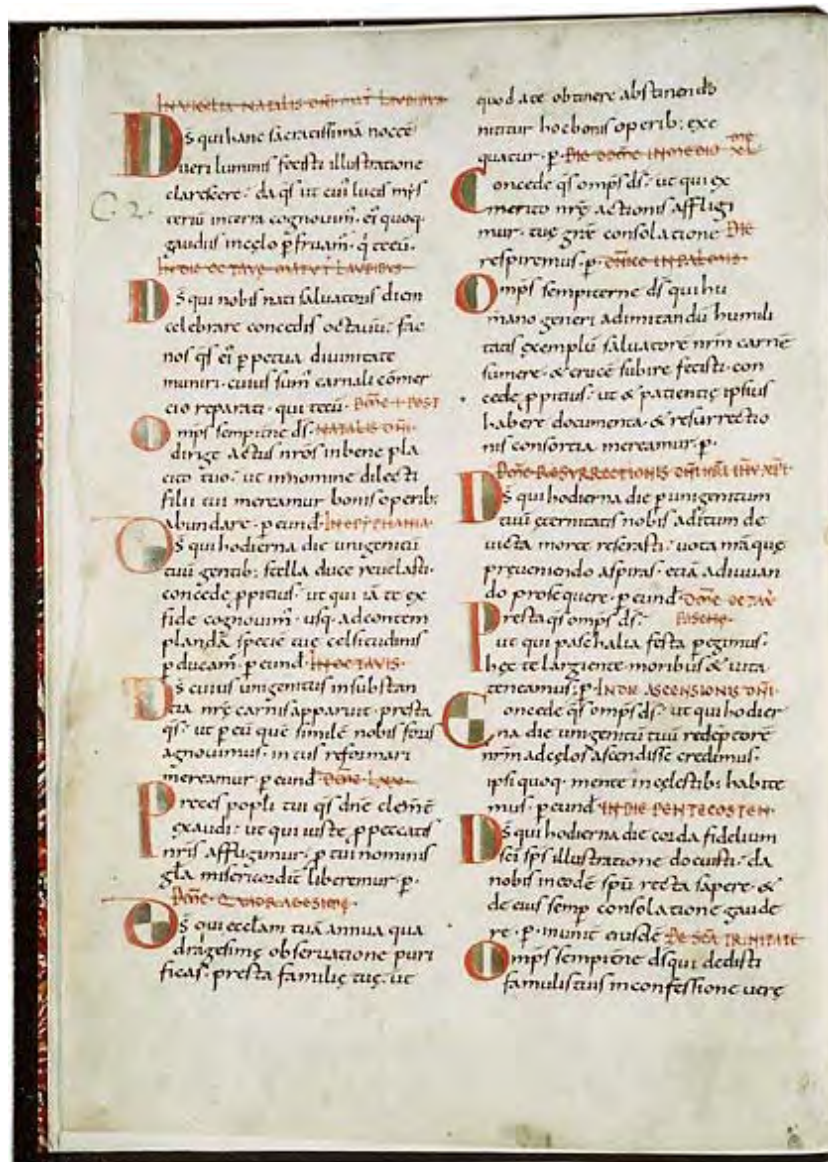 IN VIGILIA NATALIS DÑI MAT LAUDIBUS
Dš qui hanc sacratissimā noctē
veri luminis fecisti illustratione
clarescere· da qs ut cui lucis mys
teriū in terra cognovim· ei quoq·
gaudiis in cęlo pfruam· q tecū·
C. 2.
IN DIE OCTAVE MATUT LAUDIBUS
Dš qui nobis nati salvatoris diem
celebrare concedis octavū· fac
nos qs ei ppetua divinitate
muniri· cuius sum carnali cōmer
cio reparati· qui tecū· DOME I POST
Omps sempitne ds· NATALIS DÑI·
dirige actus nros in bene pla
cito tuo· ut in nomine dilecti
filii tui mereamur bonis operib;
abundare· p eund· IN EPYPHANIA·
Dš qui hodierna die unigenitū
tuū gentib; stella duce revelasti·
concede ppitius· ut qui iā te ex
fide cognovim· usq· ad contem
plandā specie tuę celsitudinis
pducam· p eund· IN OCTAVIS·
Dš cuius unigenitus in substan
tia nrę carnis apparuit· presta
qs· ut p eū quē similē nobis foris
agnovimus· intus reformari
mereamur p eund· DOME LXX·
Preces popli tui qs dne clemē
exaudi· ut qui iuste p peccatis
nris affligimur· p tui nominis
gla misericordit liberemur· p·
DOME QUADRAGESIME·
Dš qui ecclam tuā annua qua
dragesimę observatione puri
ficas· presta familię tuę· ut
quod a te obtinere abstinendo
nititur hoc bonis operib; exe
quatur· p· DIE DOME IN MEDIO XL
Concede qs omps ds· ut qui ex
merito nrę actionis affligi
mur· tuę grę consolatione DIE
respiremus· p· DOMCE IN PALMIS·
Omps sempiterne ds qui hu
mano generi ad imitandū humili
tatis exemplū salvatore nrm carnē
sumere· & crucē subire fecisti· con
cede ppitius· ut & patientię ipsius
habere documenta· & resurrectio
nis consortia mereamur· p·
DOME RESURRECTIONIS DÑI NRI IHU XPI·
Dš qui hodierna die p unigenitum
tuū ęternitatis nobis aditum de
victa morte reserasti· vota nrā quę
pręveniendo aspiras· etiā adiuvan
do prosequere· p eund· DOME OCTAV
Presta qs omps ds· PASCHE·
ut qui paschalia festa pegimus·
hęc te largiente· moribus & vita
teneamus· p· IN DIE ASCENSIONIS DÑI·
Concede qs omps ds· ut qui hodier
na die unigenitū tuū redēptorē
nrm ad cęlos ascendisse credimus·
ipsi quoq· mente in cęlestib; habite
mus· p eund· IN DIE PENTECOSTEN·
Dš qui hodierna die corda fidelium
sci sps illustratione docuisti· da
nobis in eodē spū recta sapere· &
de eius semp consolatione gaude
re· p· in unit eiusdē DE SCA TRINITATE
Omps sempitne ds qui dedisti
famulis tuis in confessione verę